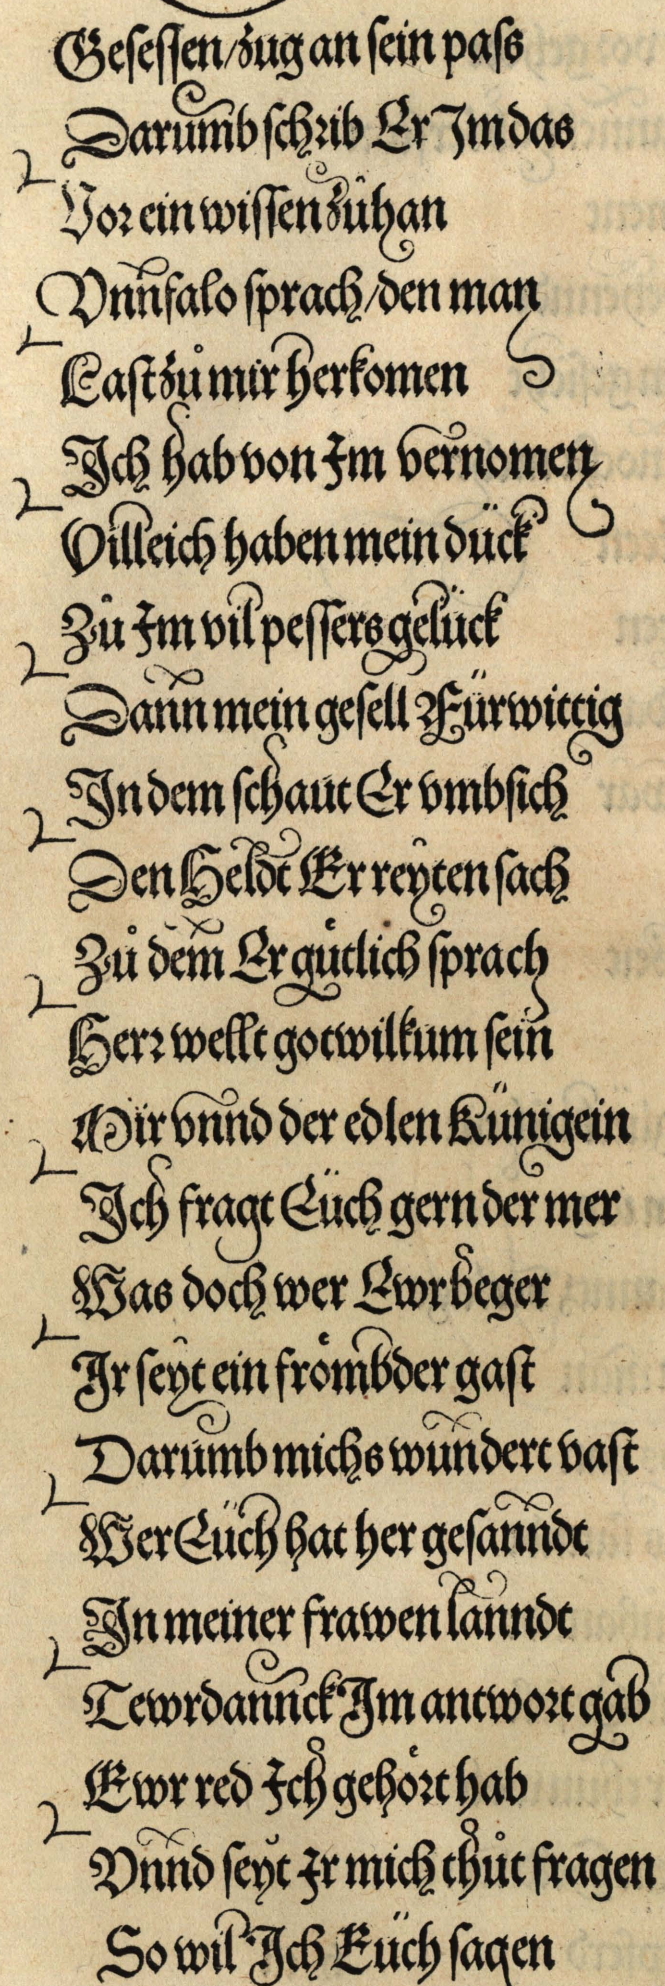 Gesessen/zug an sein pass
Darumb schrib Er Im das
Vor ein wissen zůhan
Vnnfalo sprach/den man
Last zů mir herkomen
Ich hab von Im vernomen
Villeich haben mein dück
Zů Im vil pessers gelück
Dann mein gesell Fürwittig
In dem schaut Er vmbsich
Den Heldt Er reyten sach
Zů dem Er gůtlich sprach
Herr wellt gotwilkum sein
Mir vnnd der edlen Künigein
Ich fragt Eüch gern der mer
Was doch wer Ewr beger
Ir seyt ein frömbder gast
Darumb michs wundert vast
Wer Eüch hat her gesanndt
In meiner frawen lanndt
Tewrdannck Im antwort gab
Ewr red Ich gehört hab
Vnnd seyt Ir mich thůt fragen
So wil Ich Eüch sagen